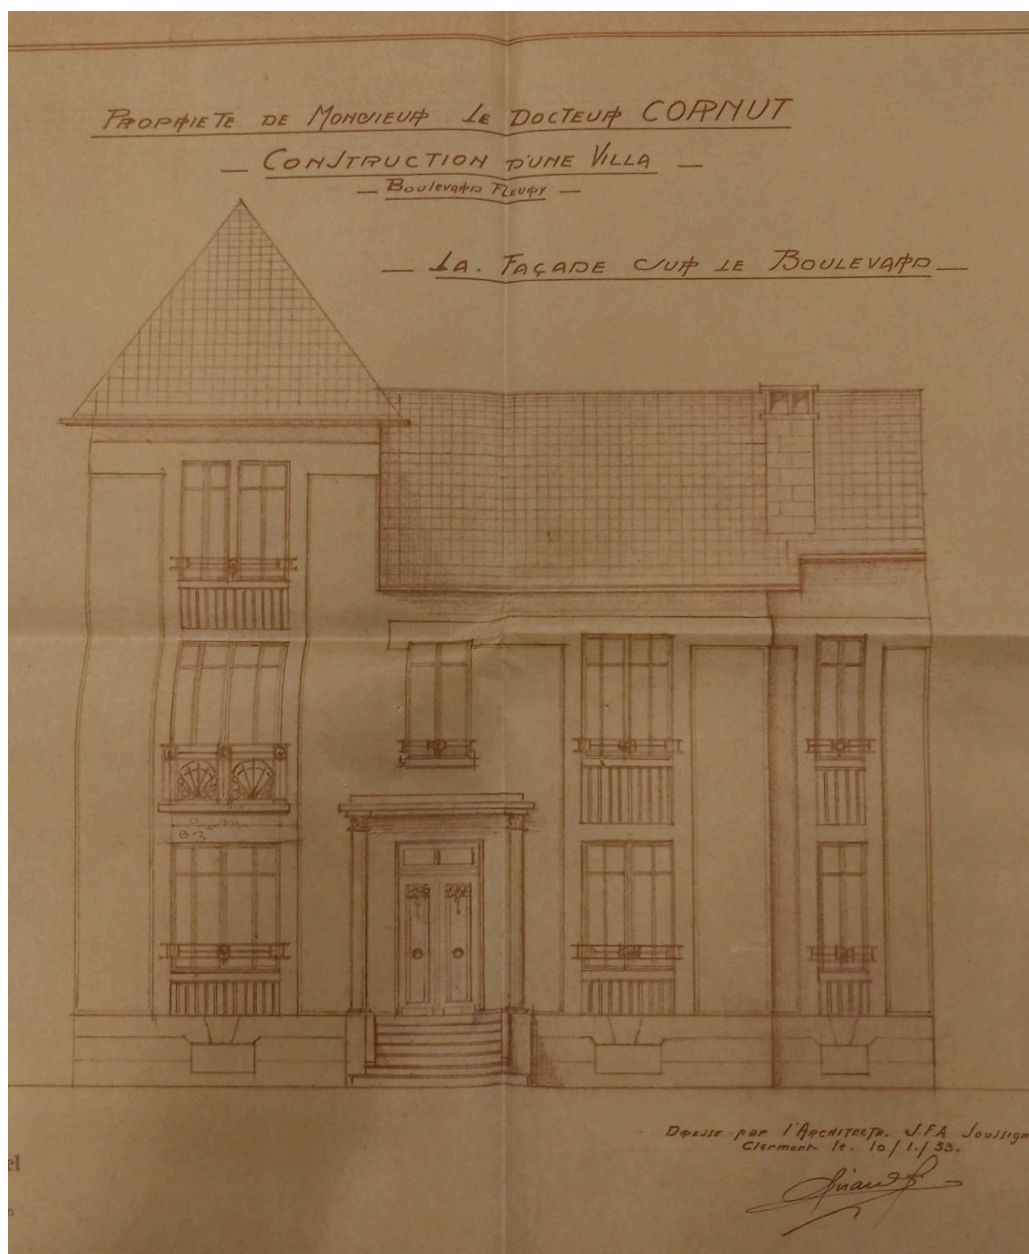 PROPRIETE DE MONSIEUR LE DOCTEUR CORNUT
CONSTRUCTION D'UNE VILLA
BOULEVARD FLEURY
LA. FAÇADE SUR LE BOULEVARD
Dressé par l'ARCHITECTE. J.F.A Joussign
Clermont le. 10/1./33.
el